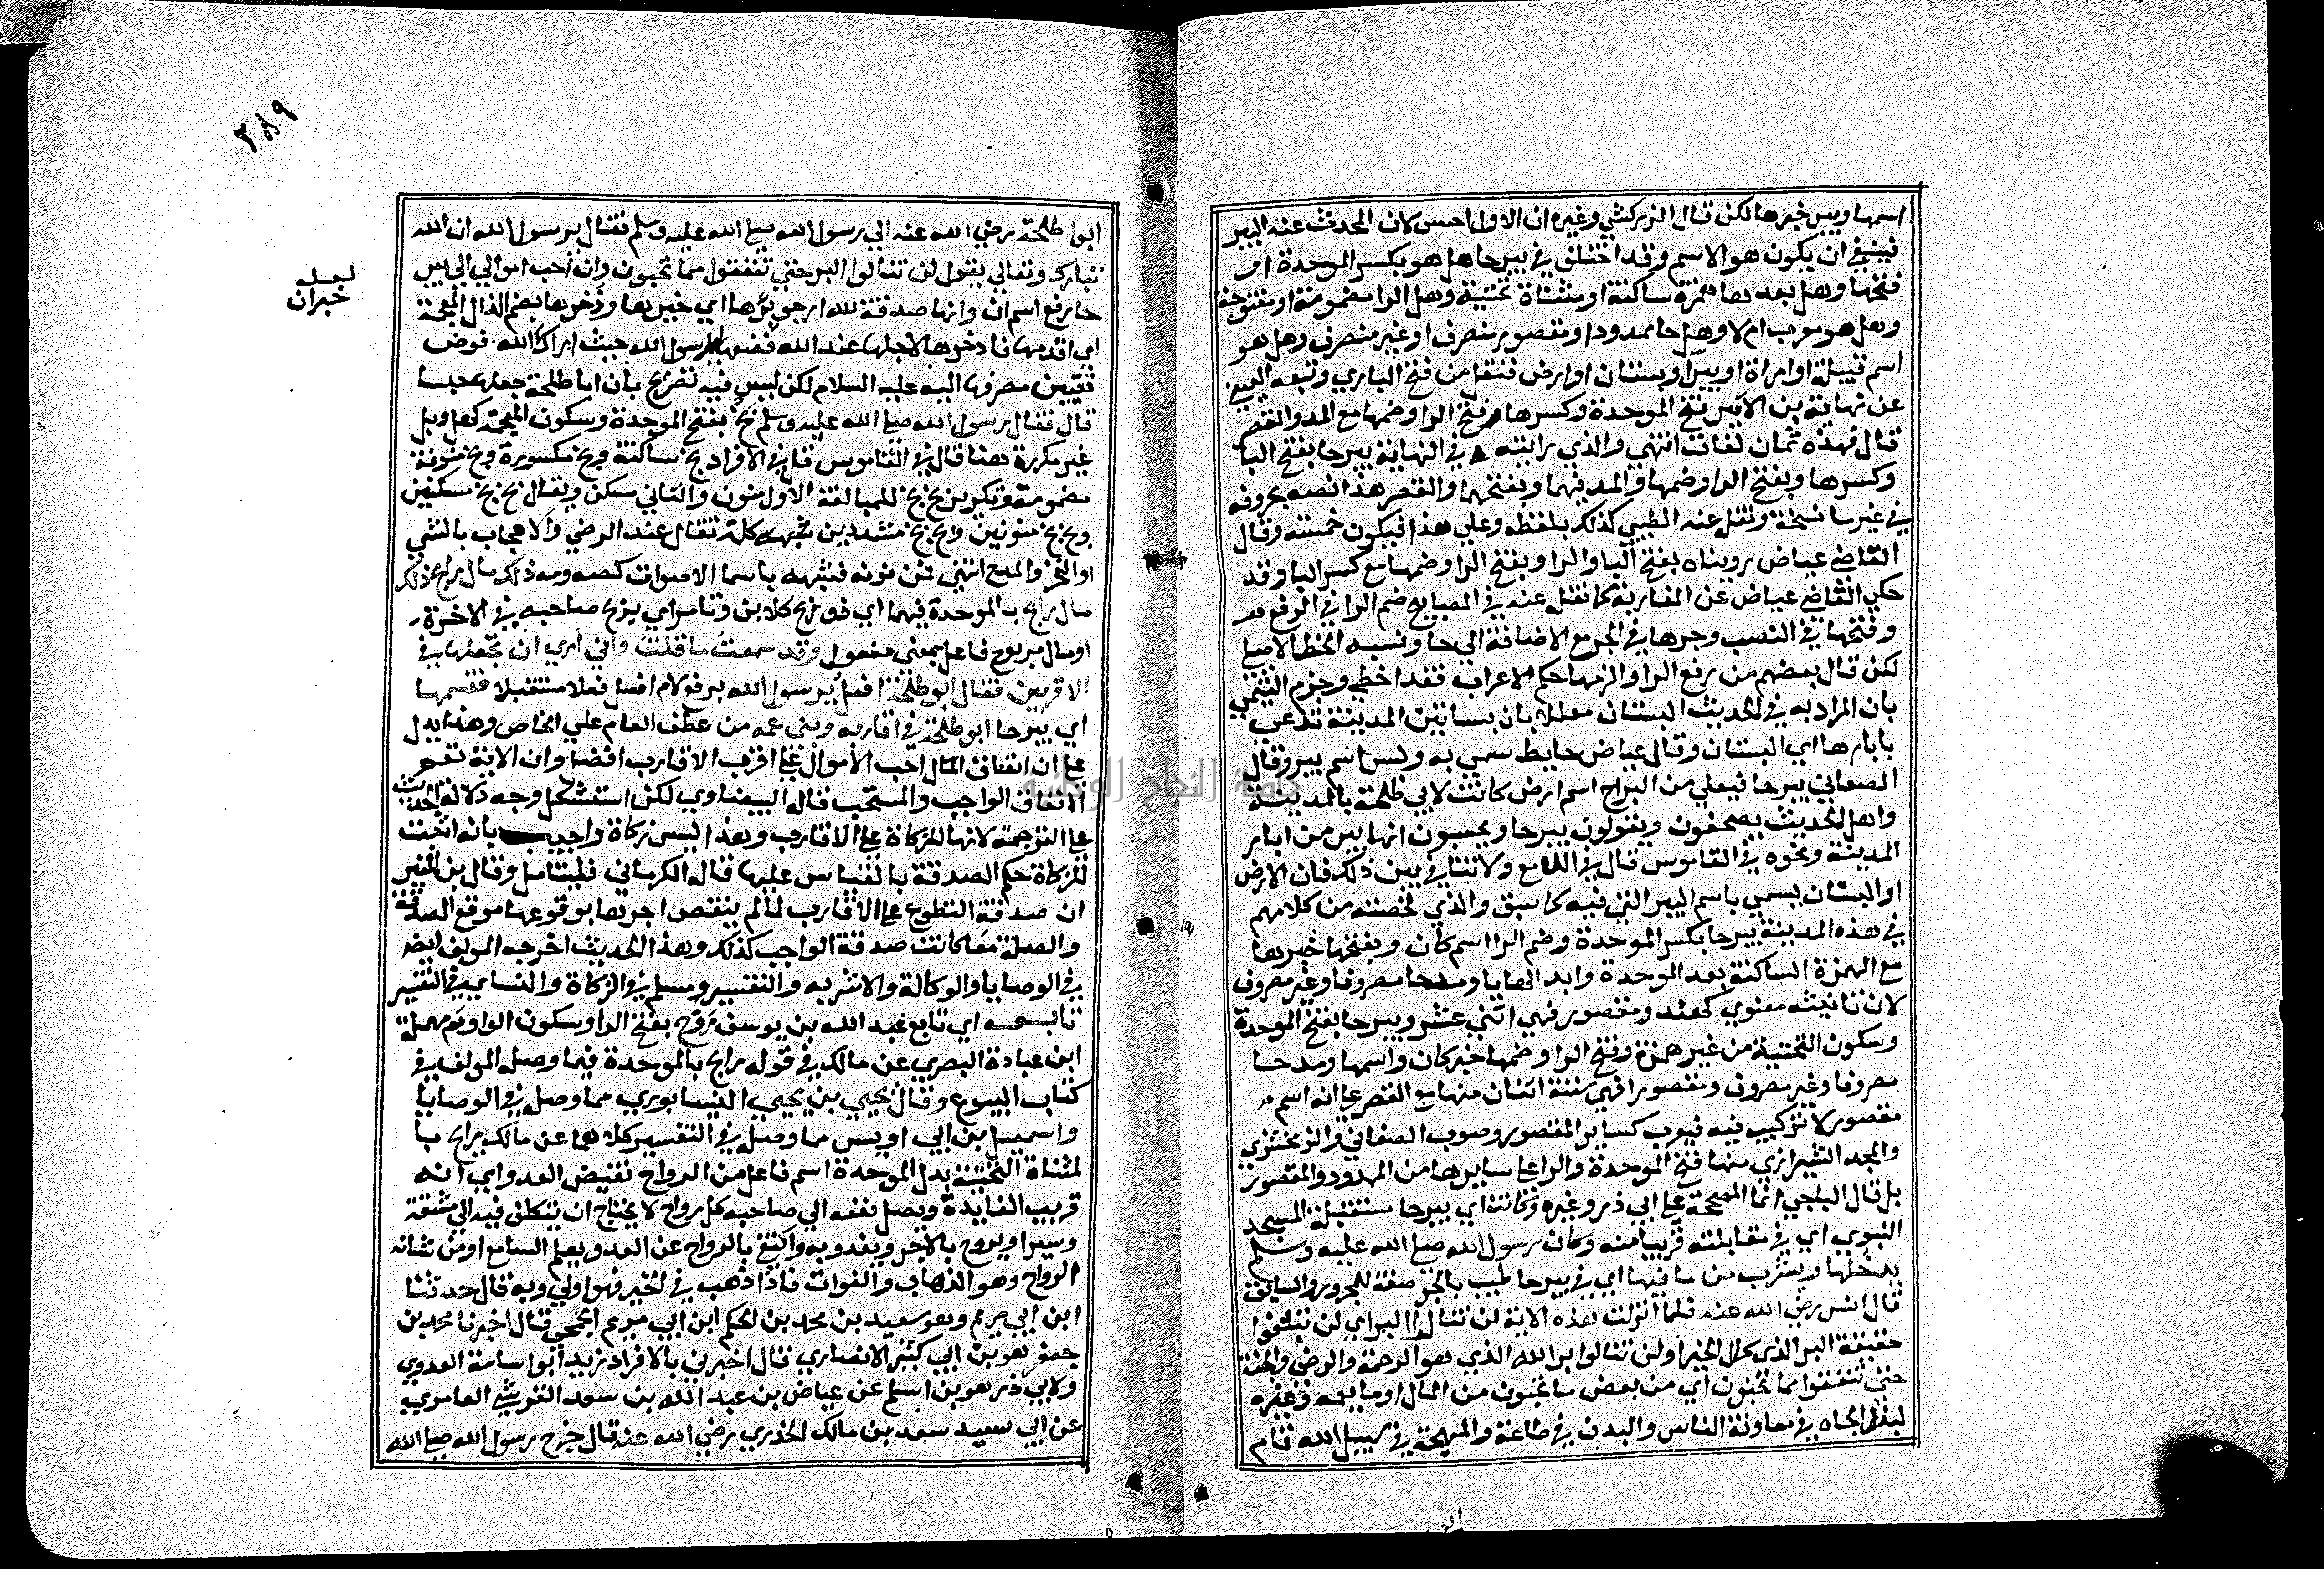 اسمها وبير خبرها لكن قال الزركشي وغيره ان الاول احسن لان المحدث عنه البير
فينبغي ان يكون هو الاسم وقد اختلف في بيرحا هل هو بكسر الموحدة او
فتحها وهل بعدها همزة ساكنة او مثناة تحتية وهل الرا مضمومة او مفتوحة
وهل هو معرب ام لا وهل حا ممدود او مقصور منصرف او غير منصرف وهل هو
اسم قبيلة او امراة او بير او بستان او ارض فنقل من فتح الباري وتبعه العيني
عن نهاية بن الاثير فتح الموحدة وكسرها وفتح الرا وضمها مع المد والقصر
قال فهذه ثمان لغات انتهي والذي رايته في النهاية بيرحا بفتح البا
وكسرها وبفتح الرا وضمها والمد فيهما وبفتحهما والقصر هذا نصه بحروفه
في غير ما نسخة ونقل عنه الطيبي كذلك بلفظه وعلي هذا فيكون خمسة وقال
القاضي عياض رويناه بفتح البا والرا وبفتح الرا وضمها مع كسر البا وقد
حكي القاضي عياض عن المغاربة كما نقله عنه في المصابيح ضم الرا في الرفع
وفتحها في النصب وجرها في الجر مع الاضافة الي حا ونسبه لخط الاصيلي
لكن قال بعضهم من رفع الرا والزمها حكم الاعراب فقد اخطي وجزم التيمي
بان المراد به في الحديث البستان معللا بان بساتين المدينة تدعي
بابارها اي البستان وقال عياض حايط سمي به وليس اسم بير وقال
الصغاني بيرحا فيعلي من البراح اسم ارض كانت لابي طلحة بالمدينة
واهل الحديث يصحفون ويقولون بيرحا ويحسبون انها بير من ابار
المدينة ونحوه في القاموس قال في اللامع ولا تنافي بين ذلك فان الارض
او البستان يسمي باسم البير التي فيه كما سبق والذي لخصته من كلامهم
في هذه المدينة بيرحا بكسر الموحدة وضم الرا اسم كان وبفتحها خبرها
مع الهمزة الساكنة بعد الموحدة وابدالها يا ومد حا مصروفا وغير مصروف
لان تانيثه معنوي كهند ومقصور فهي اثني عشر وبيرحا بفتح الموحدة
وسكون التحتية من غير همزة وفتح الرا وضمها خبر كان واسمها ومد حا
مصروفا وغير مصروف ومقصورا فهي ستة اثنان منها مع القصر علي انه اسم
مقصور لا تركيب فيه فيعرب كساير المقصور وصوب الصغاني والزمخشري
والمجد الشيرازي منها فتح الموحدة والرا علي سايرها من الممدود والمقصور
بل قال الباجي انها المصححة علي ابي ذر وغيره وكانت اي بيرحا مستقبلة المسجد
النبوي اي في مقابلته قريبا منه وكان رسول الله صلي الله عليه وسلم
يدخلها ويشرب من ما فيها اي في بيرحا طيب بالجر صفة للمجرور السابق
قال انس رضي الله عنه فلما انزلت هذه الاية لن تنالوا البر اي لن تبلغوا
حقيقة البر الذي كمال الخير او لن تنالوا بر الله الذي هو الرحمة والرضي والجنة
حتي تنفقوا مما تحبون اي من بعض ما تحبون من المال او ما يعمه وغيره
لبذل الجاه في معاونة الناس والبدن في طاعة والمهجة في سبيل الله قام
٢٨٩
ابو طلحة رضي الله عنه الي رسول الله صلي الله عليه وسلم فقال يرسول الله ان الله
تبارك وتعالي يقول لن تنالوا البر حتي تنفقوا مما تحبون وان احب اموالي الي بير
لعله خبران
حا رفع اسم ان وانها صدقة لله ارجو برها اي خيرها وذخرها بضم الذال المعجمة
اي اقدمها فادخرها لاجلها عند الله فضعها يرسول الله حيث اراك الله فوض
تعيين مصرفها اليه عليه السلام لكن ليس فيه تصريح بان ابا طلحة جعلها حبسا
قال فقال رسول الله صلي الله عليه وسلم بخ بفتح الموحدة وسكون المعجمة كهل وبل
غير مكررة هنا قال في القاموس قل في الافراد بخ ساكنة وبخ مكسورة وبخ منونة
مضمومة وتكرير بخ بخ للمبالغة الاول منون والثاني مسكن ويقال بخ بخ مسكنين
وبخ بخ منونين وبخ بخ مشددين كلمة تقال عند الرضي والاعجاب بالشي
او الفخر والمدح انتهي فمن نونه فشبهه باسما الاصوات كصه ومه ذلك مال رابح ذلك
مال رابح بالموحدة فيهما اي ذو ربح كلابن وتامر اي يربح صاحبه في الاخرة
او مال مربوح فاعل بمعني مفعول وقد سمعت ما قلت واني اري ان تجعلها في
الاقربين فقال ابو طلحة افعل يرسول الله برفع لام افعل فعلا مستقبلا فقسمها
اي بيرحا ابو طلحة في اقاربه وبني عمه من عطف العام علي الخاص وهذا يدل
علي ان انفاق المال احب الاموال علي اقرب الاقارب افضل وان الاية تعم
الانفاق الواجب والمستحب قاله البيضاوي لكن استشكل وجه دلالة الحديث
علي الترجمة لانها للزكاة علي الاقارب وهذا ليس زكاة واجيب بانه اثبت
للزكاة حكم الصدقة بالقياس عليها قاله الكرماني فليتامل وقال بن المنير
ان صدقة التطوع علي الاقارب لما لم ينقص اجرها بوقوعها موقع الصدقة
والصلة معا كانت صدقة الواجب كذلك وهذا الحديث اخرجه المولف ايضا
في الوصايا والوكالة والاشربه والتفسير ومسلم في الزكاة والنساي في التفسير
تابعه اي تابع عبد الله بن يوسف روح بفتح الرا وسكون الواو ثم مهملة
ابن عبادة البصري عن مالك في قوله رابح بالموحدة فيما وصله المولف في
كتاب البيوع وقال يحيي بن يحيي النيسابوري مما وصله في الوصايا
واسمعيل بن ابي اويس مما وصله في التفسير كلاهما عن مالك رايح با
لمثناة التحتية بدل الموحدة اسم فاعل من الرواح نقيض الغدو اي انه
قريب الفايدة ويصل نفعه الي صاحبه كل رواح لا يحتاج ان يتكلف فيه الي مشقة
وسير او يروح بالاجر ويغدو به واكتفي بالرواح عن الغدو بعلم السامع او من شانه
الرواح وهو الذهاب والفوات فاذا ذهب في الخير فهو اولي وبه قال حدثنا
ابن ابي مريم وهو سعيد بن محمد بن الحكم ابن ابي مريم الجمحي قال اخبرنا محمد بن
جعفر هو بن ابي كثير الانصاري قال اخبرني بالافراد زيد ابو اسامة العدوي
ولابي ذر هو بن اسلم عن عياض بن عبد الله بن سعد القريشي العامري
عن ابي سعيد سعد بن مالك الخدري رضي الله عنه قال خرج رسول الله صلي الله
جامعة النجاح الوطنية